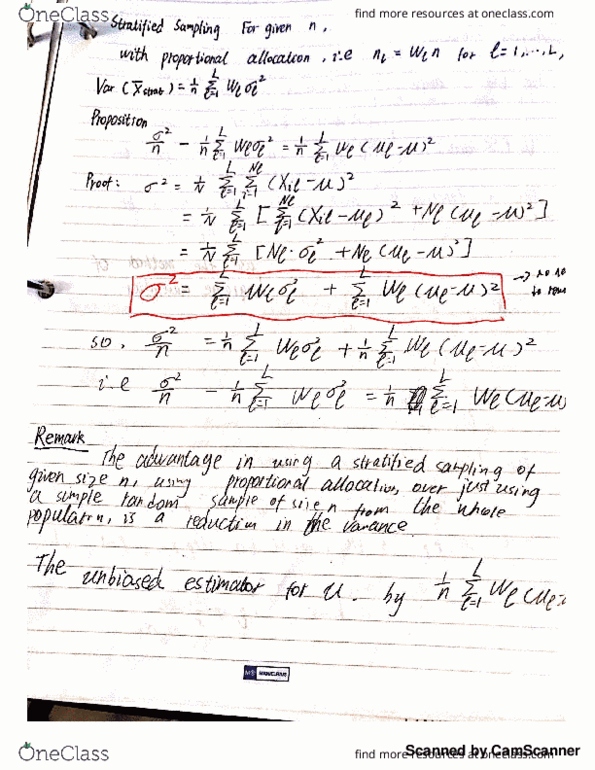 OneClass
find more resources at oneclass.com
Stratified Sampling For given n,
with proportional allocation, i.e nℓ = Wℓ n for ℓ = 1, ..., L,
Var (X̄strat) = 1/n Σ_{ℓ=1}^{L} Wℓ σℓ²
Proposition
σ²/n - 1/n Σ_{ℓ=1}^{L} Wℓ σℓ² = 1/n Σ_{ℓ=1}^{L} Wℓ (μℓ - μ)²
Proof: σ² = 1/N Σ_{ℓ=1}^{L} Σ_{i=1}^{Nℓ} (Xiℓ - μ)²
= 1/N Σ_{ℓ=1}^{L} [ Σ_{i=1}^{Nℓ} (Xiℓ - μℓ)² + Nℓ (μℓ - μ)² ]
= 1/N Σ_{ℓ=1}^{L} [ Nℓ · σℓ² + Nℓ (μℓ - μ)² ]
σ² = Σ_{ℓ=1}^{L} Wℓ σℓ² + Σ_{ℓ=1}^{L} Wℓ (μℓ - μ)² →
so, σ²/n = 1/n Σ_{ℓ=1}^{L} Wℓ σℓ² + 1/n Σ_{ℓ=1}^{L} Wℓ (μℓ - μ)²
i.e σ²/n - 1/n Σ_{ℓ=1}^{L} Wℓ σℓ² = 1/n Σ_{ℓ=1}^{L} Wℓ (μℓ - μ
Remark
The advantage in using a stratified sampling of
given size n, using proportional allocation, over just using
a simple random sample of size n from the whole
population, is a reduction in the variance
The unbiased estimator for μ. by 1/n Σ_{ℓ=1}^{L} Wℓ (μℓ
OneClass
find more resources at oneclass.com
Scanned by CamScanner